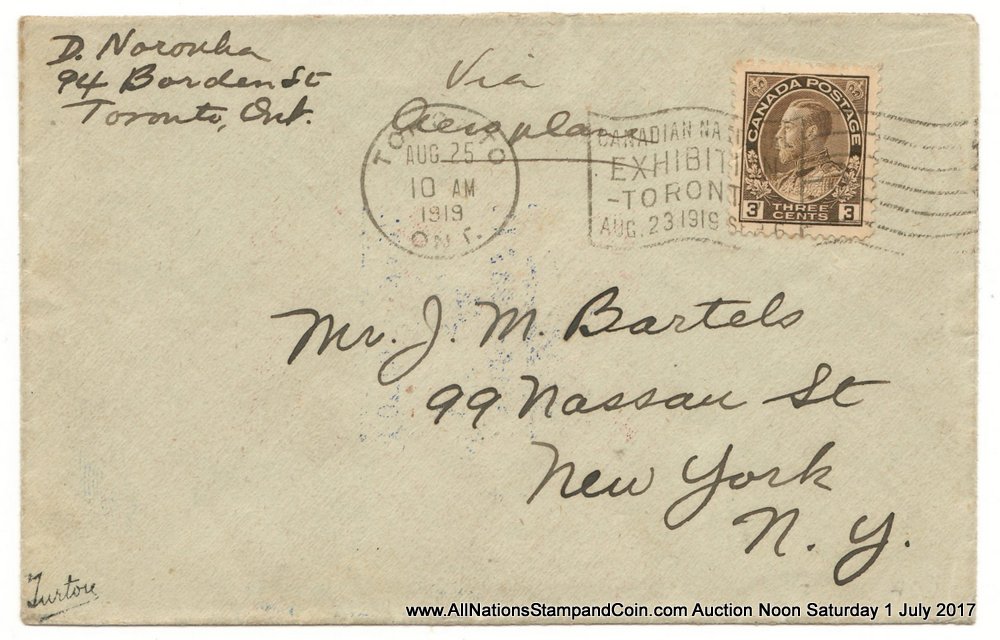 D. Noronha
94 Borden St
Toronto, Ont.
Via
Aeroplane
TORONTO
AUG 25
10 AM
1919
ONT.
CANADIAN NA
EXHIBITI
-TORONT
AUG. 23 1919 SEP 6
CANADA POSTAGE
3 THREE CENTS 3
Mr. J. M. Bartels
99 Nassau St
New York
N. Y.
www.AllNationsStampandCoin.com Auction Noon Saturday 1 July 2017